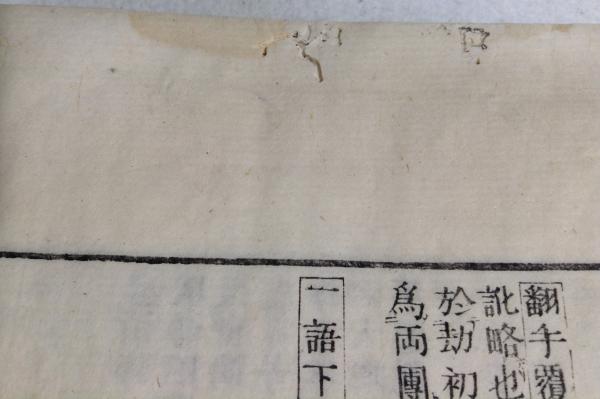 翻手覆
訛略也
於劫初
爲両團
一語下